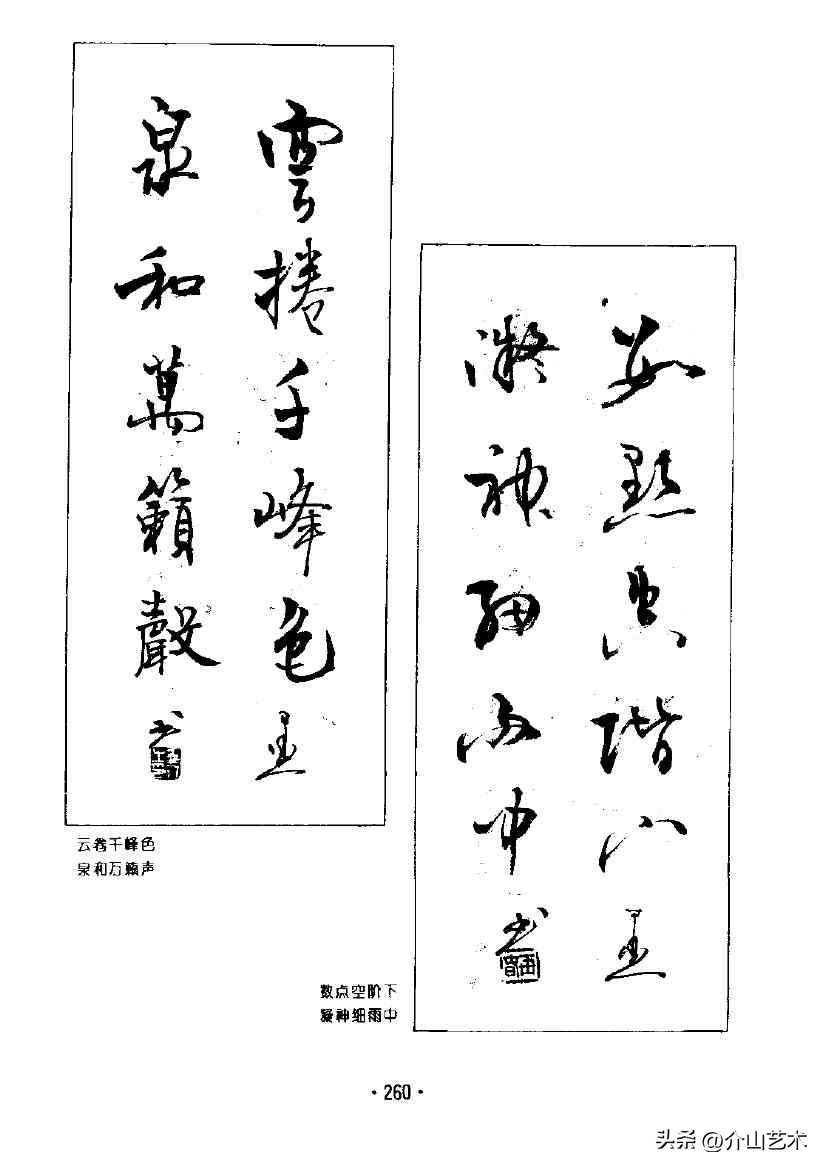 雲捲千峰色
泉和萬籟聲
书
云卷千峰色
泉和万籁声
数點空階下
凝神細雨中
书
数点空阶下
凝神细雨中
·260·
头条 @介山艺术